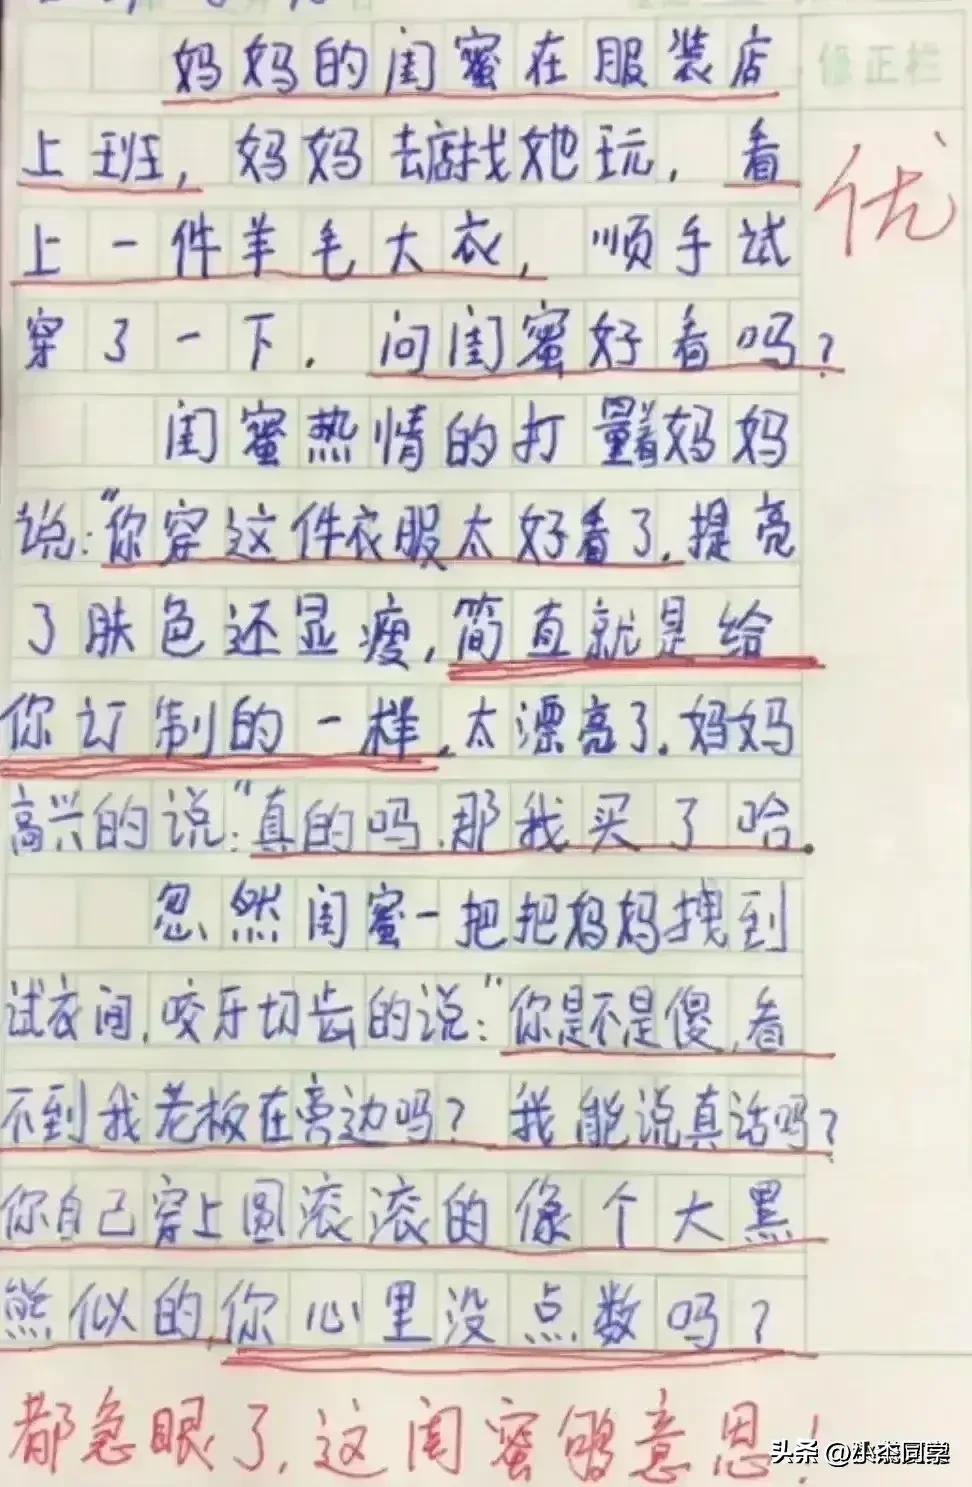 妈妈的闺蜜在服装店
修正栏
上班，妈妈去店找她玩，看
优
上一件羊毛大衣，顺手试
穿了一下．问闺蜜好看吗？
闺蜜热情的打量着妈妈
说："你穿这件衣服太好看了．提亮
了肤色还显瘦，简直就是给
你订制的一样．太漂亮了．妈妈
高兴的说："真的吗．那我买了哈．
忽然闺蜜一把把妈妈拽到
试衣间，咬牙切齿的说："你是不是傻，看
不到我老板在旁边吗？我能说真话吗？
你自己穿上圆滚滚的像个大黑
熊似的，你心里没点数吗？
都急眼了，这闺蜜够意思！
头条 @